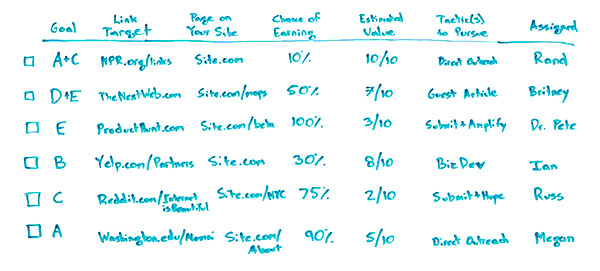 Goal Link Target Page on Your Site Chance of Earning Estimated Value Tactic(s) to Pursue Assigned
A+C NPR.org/links Site.com 10% 10/10 Direct Outreach Rand
D+E TheNextWeb.com Site.com/maps 50% 7/10 Guest Article Britney
E ProductHunt.com Site.com/beta 100% 3/10 Submit+Amplify Dr. Pete
B Yelp.com/Partners Site.com 30% 8/10 BizDev Ian
C Reddit.com/Internet is Beautiful Site.com/NYC 75% 2/10 Submit+Hope Russ
A Washington.edu/ Site.com/About 90% 5/10 Direct Outreach Megan